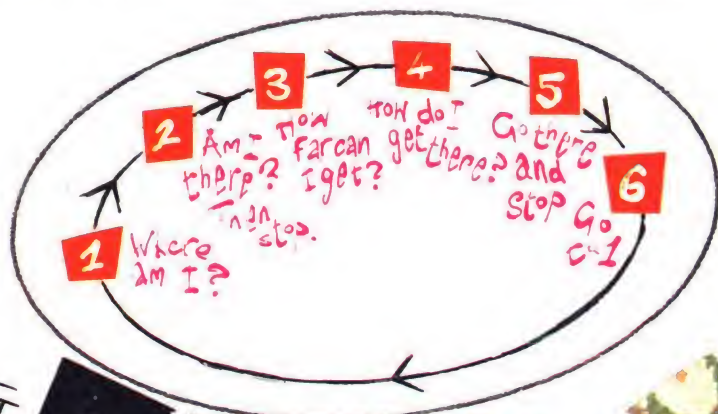 1
Where
am I?
2
Am I
there?
Then
stop.
3
How
far can
I get?
4
How do I
get there?
5
Go there
and
stop
6
Go
1